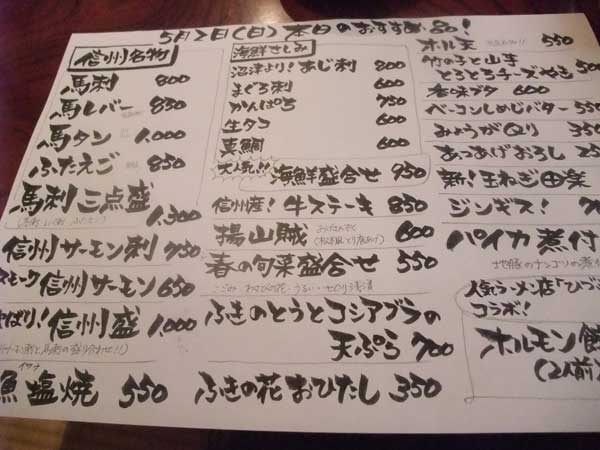 5月2日(日) 本日のおすすめ品!
信州名物
馬刺 800
馬レバー 850
馬タン 1,000
ふたえご 850
馬刺三点盛
1,300
信州サーモン刺 750
スモーク信州サーモン 650
やっぱり!信州盛 1,000
イワナ
魚塩焼 550
海鮮さしみ
沼津より!あじ刺 800
まぐろ刺 600
かんぱち 750
生タコ 600
真鯛 600
大人気!!海鮮盛合せ 950
信州産!牛ステーキ 850
揚山賊 600
春の旬菜盛合せ 550
ふきのとうとコシアブラの
天ぷら 700
ふきの花おひたし 350
オル天 550
竹の子と山芋
とろとろチーズやき 50
香味ブタ 600
ベーコンしめじバター 550
みょうがQり 350
あつあげおろし
新!玉ねぎ田楽
ジンギス!
パイカ煮付
地豚のナンコツの煮
人気ラーメン店「ひづき
コラボ!
ホルモン
(2人前)